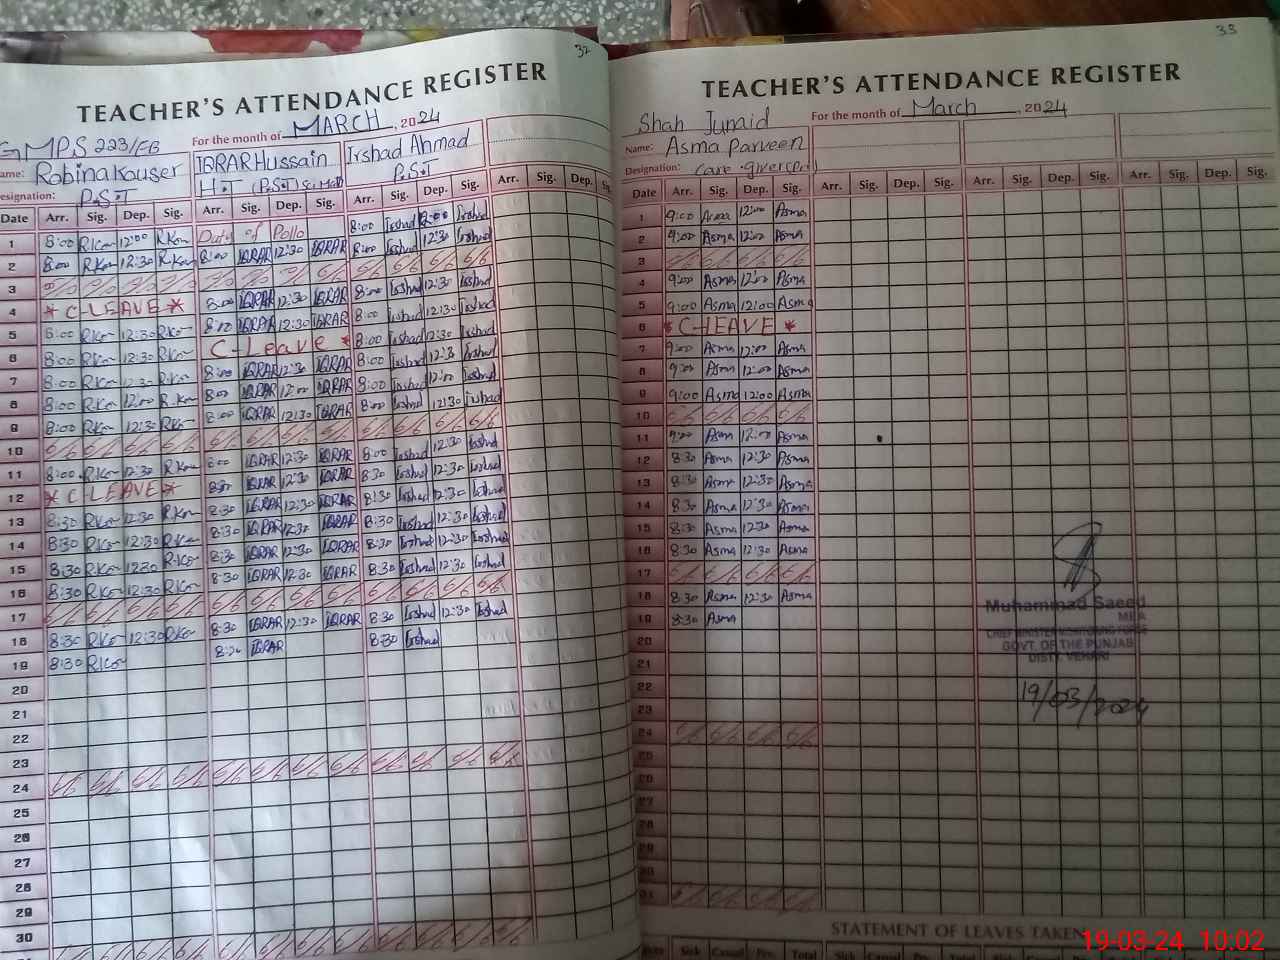 32
TEACHER'S ATTENDANCE REGISTER
For the month of MARCH, 2024
GMPS 223/EB
Name: Robina Kouser IQRAR Hussain Irshad Ahmad
Designation: P.S.T H.T (P.S.T) P.S.T
Date Arr. Sig. Dep. Sig. Arr. Sig. Dep. Sig. Arr. Sig. Dep. Sig. Arr. Sig. Dep. Sig.
1 8:00 RKo 12:00 RKo Duty of Polio 8:00 Irshad 12:00 Irshad
2 8:00 RKo 12:30 RKo 8:00 IQRAR 12:30 IQRAR 8:00 Irshad 12:30 Irshad
3
4 * C-LEAVE * 8:00 IQRAR 12:30 IQRAR 8:00 Irshad 12:30 Irshad
5 8:00 RKo 12:30 RKo 8:00 IQRAR 12:30 IQRAR 8:00 Irshad 12:30 Irshad
6 8:00 RKo 12:30 RKo C-Leave * 8:00 Irshad 12:30 Irshad
7 8:00 RKo 12:30 RKo 8:00 IQRAR 12:30 IQRAR 8:00 Irshad 12:30 Irshad
8 8:00 RKo 12:00 RKo 8:00 IQRAR 12:00 IQRAR 8:00 Irshad 12:00 Irshad
9 8:00 RKo 12:30 RKo 8:00 IQRAR 12:30 IQRAR 8:00 Irshad 12:30 Irshad
10
11 8:00 RKo 12:30 RKo 8:00 IQRAR 12:30 IQRAR 8:00 Irshad 12:30 Irshad
12 * C-LEAVE * 8:30 IQRAR 12:30 IQRAR 8:30 Irshad 12:30 Irshad
13 8:30 RKo 12:30 RKo 8:30 IQRAR 12:30 IQRAR 8:30 Irshad 12:30 Irshad
14 8:30 RKo 12:30 RKo 8:30 IQRAR 12:30 IQRAR 8:30 Irshad 12:30 Irshad
15 8:30 RKo 12:30 RKo 8:30 IQRAR 12:30 IQRAR 8:30 Irshad 12:30 Irshad
16 8:30 RKo 12:30 RKo 8:30 IQRAR 12:30 IQRAR 8:30 Irshad 12:30 Irshad
17
18 8:30 RKo 12:30 RKo 8:30 IQRAR 12:30 IQRAR 8:30 Irshad 12:30 Irshad
19 8:30 RKo 8:30 IQRAR 8:30 Irshad
20
21
22
23
24
25
26
27
28
29
30
33
TEACHER'S ATTENDANCE REGISTER
For the month of March, 2024
Shah Junaid
Name: Asma Parveen
Designation: care giver
Date Arr. Sig. Dep. Sig. Arr. Sig. Dep. Sig. Arr. Sig. Dep. Sig. Arr. Sig. Dep. Sig.
1 9:00 Asma 12:00 Asma
2 9:00 Asma 12:00 Asma
3
4 9:00 Asma 12:00 Asma
5 9:00 Asma 12:00 Asma
6 * C-LEAVE *
7 9:00 Asma 12:00 Asma
8 9:00 Asma 12:00 Asma
9 9:00 Asma 12:00 Asma
10
11 9:00 Asma 12:00 Asma
12 8:30 Asma 12:30 Asma
13 8:30 Asma 12:30 Asma
14 8:30 Asma 12:30 Asma
15 8:30 Asma 12:30 Asma
16 8:30 Asma 12:30 Asma
17
18 8:30 Asma 12:30 Asma
19 8:30 Asma
20
21
22
23
24
25
26
27
28
29
30
31
Muhammad Saeed
MEA
CHIEF MINISTER MONITORING FORCE
GOVT. OF THE PUNJAB
DISTT. VEHARI
19/03/2024
STATEMENT OF LEAVES TAKEN
Sick Casual Pre. Total Sick Casual Pre. Total
19-03-24 10:02